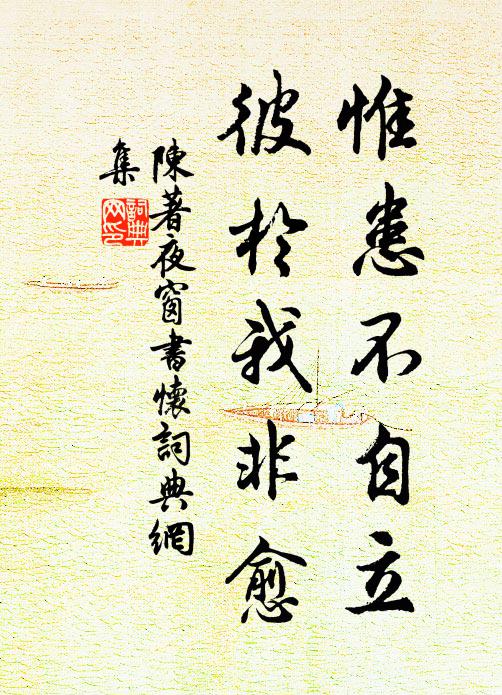 惟患不自立
彼於我非愈
陳著夜窗書懷詞典網
集
詞典
网印